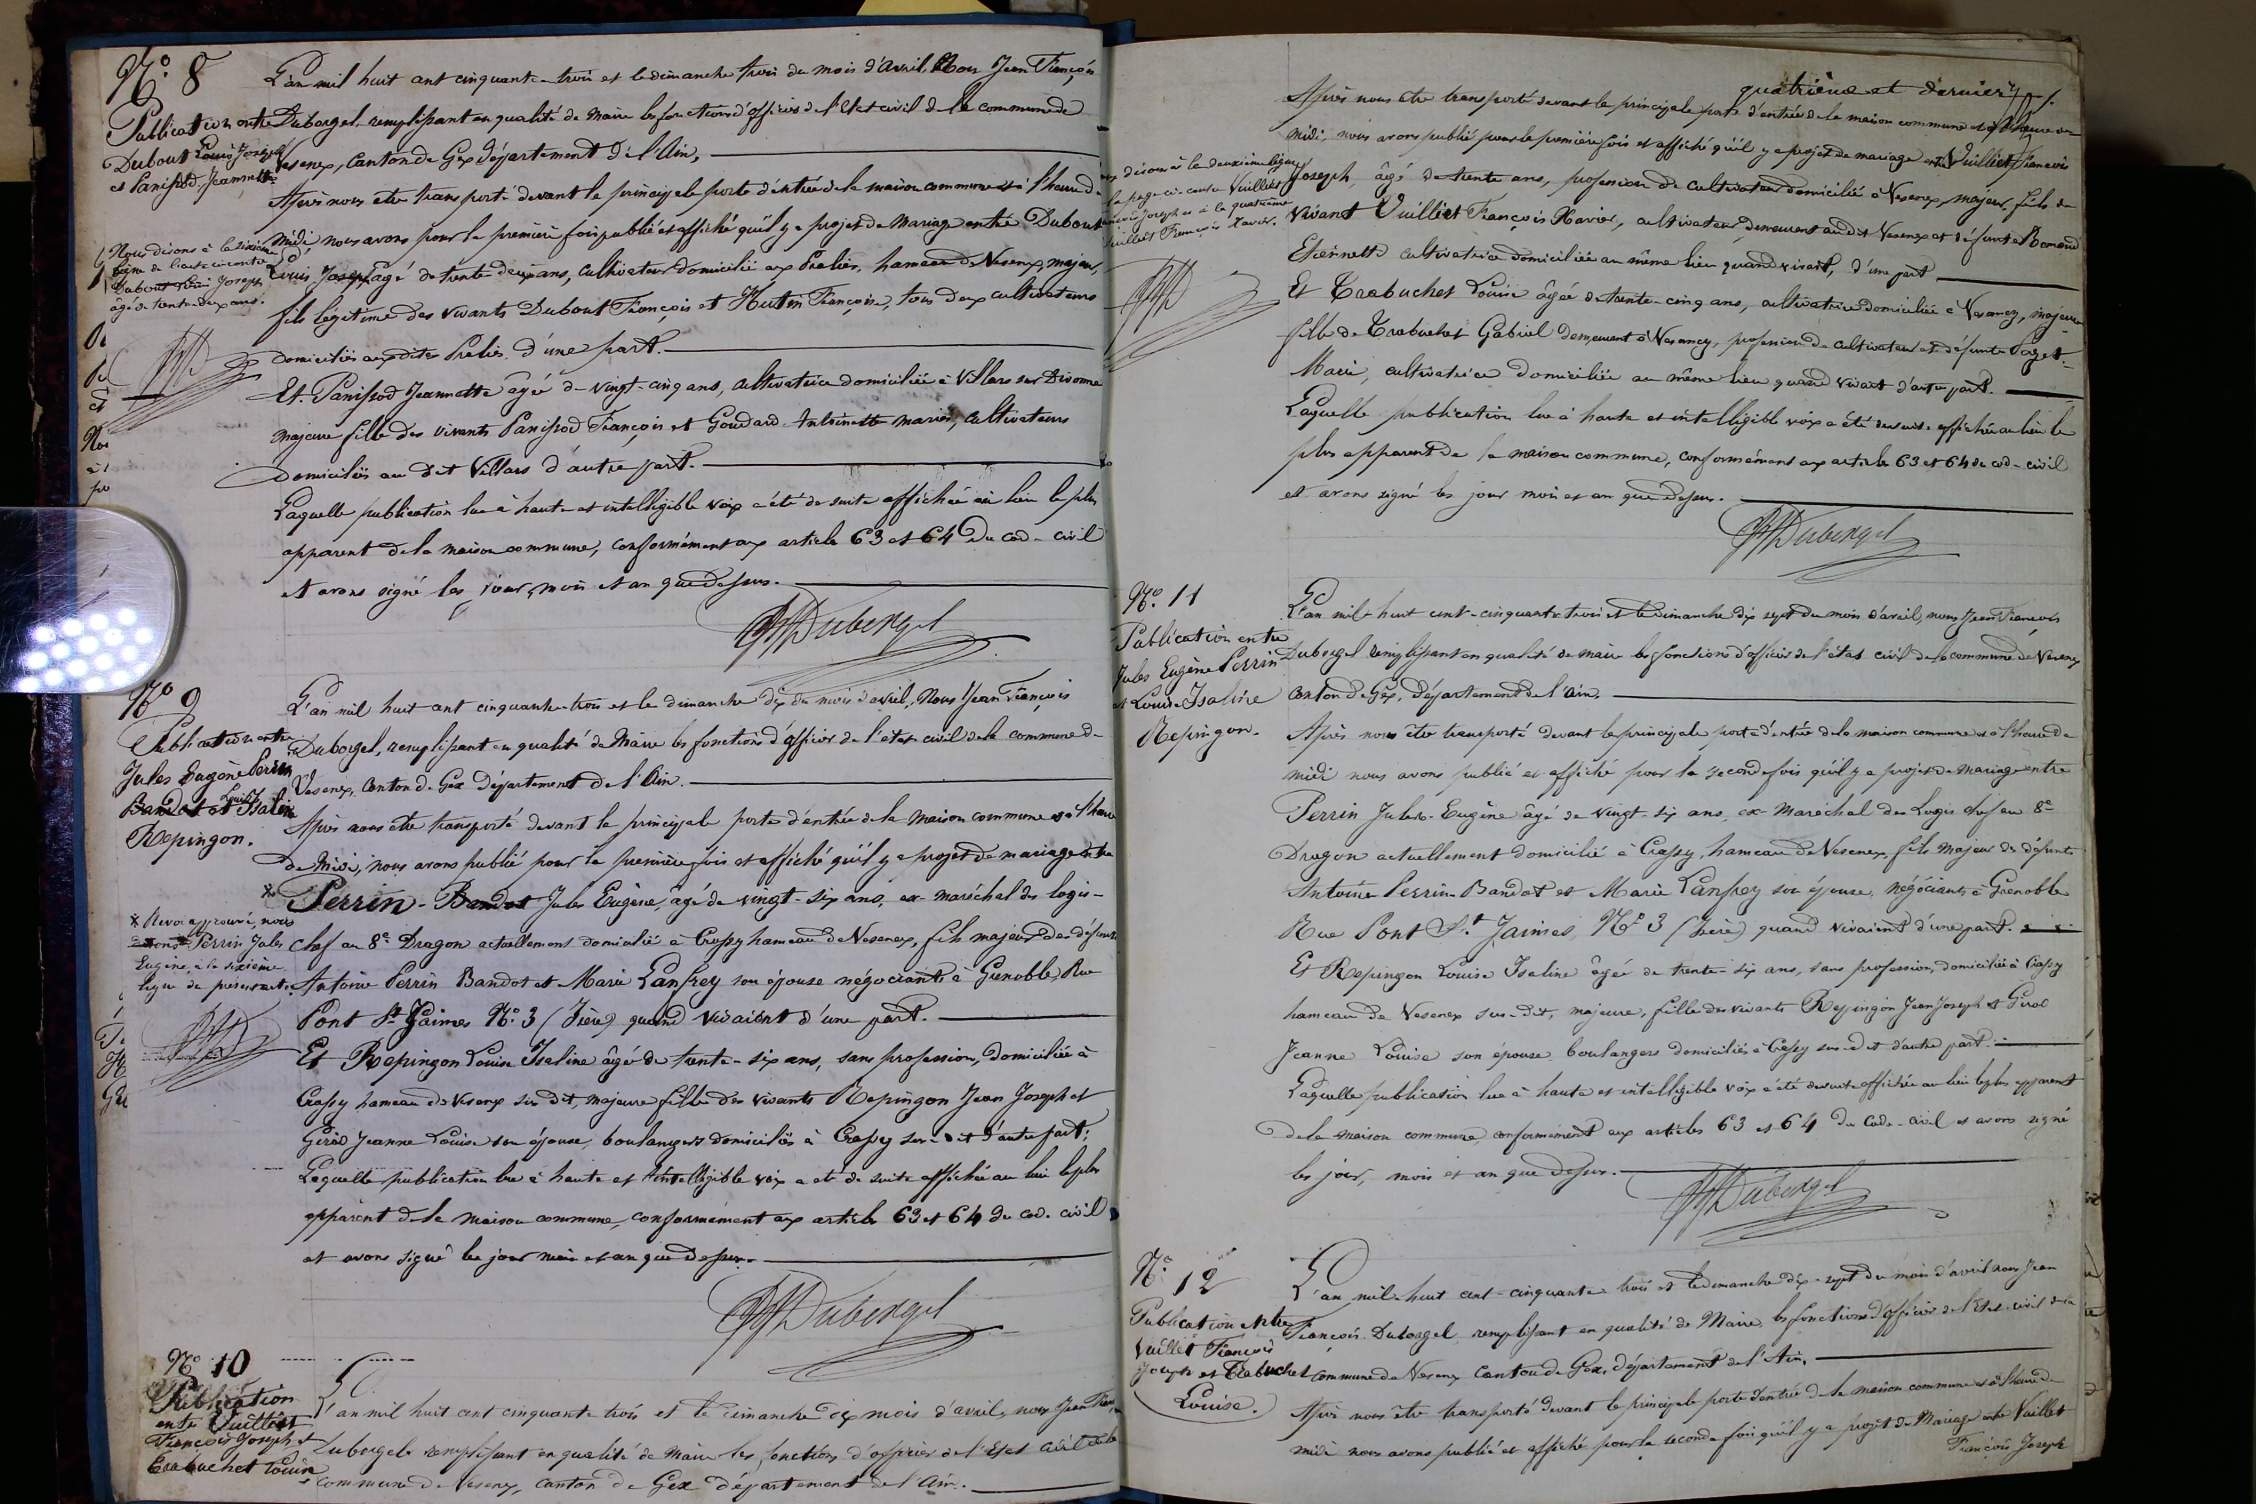 N.° 8
Publication entre
Dubout Louis Joseph
et Panissod Jeannette
L'an mil huit cent cinquante-trois et le dimanche trois du mois d'avril, Nous Jean François
Duborgel, remplissant en qualité de Maire les fonctions d'officier de l'état civil de la commune de
Vesenex, Canton de Gex Département de l'Ain,
Après nous être transporté devant la principale porte d'entrée de la maison commune et à l'heure de
midi nous avons pour la première fois publié et affiché qu'il y a projet de Mariage entre Dubout
Louis, Joseph âgé de trente deux ans, cultivateur domicilié aux Prelies, hameau de Vesenex, majeur,
fils légitime des vivants Dubout François et Hutin Françoise, tous deux cultivateurs
domiciliés auxdites Prelies d'une part.
Et Panissod Jeannette âgée de vingt-cinq ans, cultivatrice domiciliée à Villars sur Divonne
majeure fille des vivants Panissod François et Goudard Antoinette mariés, cultivateurs
domiciliés au dit Villars d'autre part.
Laquelle publication lue à haute et intelligible voix a été de suite affichée au lieu le plus
apparent de la maison commune, conformément aux articles 63 et 64 du code civil
et avons signé les jour, mois et an que dessus.
Nous disons à la sixième
ligne de l'acte ci-contre
Dubout Louis Joseph
âgé de trente-deux ans.
JFDuborgel
N° 9
Publication entre
Jules Eugène Perrin
Bandot et Louise Isaline
Repingon.
L'an mil huit cent cinquante-trois et le dimanche dix du mois d'avril, Nous Jean François
Duborgel, remplissant en qualité de Maire les fonctions d'officier de l'état civil de la commune de
Vesenex, canton de Gex Département de l'Ain.
Après nous être transporté devant la principale porte d'entrée de la maison commune et à l'heure
de Midi, nous avons publié pour la première fois et affiché qu'il y a projet de mariage entre
* Perrin-Bandot Jules Eugène, âgé de vingt-six ans, ex-maréchal des logis-
chef au 8e Dragon actuellement domicilié à Crassy hameau de Vesenex, fils majeur des défunts
Antoine Perrin Bandot et Marie Lanfrey son épouse négociants à Grenoble, Rue
Pont St Jaimes N.° 3 (Isère) quand vivaient d'une part.
Et Repingon Louise Isaline âgée de trente-six ans, sans profession, domiciliée à
Crassy hameau de Vesenex sus dit, majeure fille des vivants Repingon Jean Joseph et
Girod Jeanne Louise son épouse, boulangers domiciliés à Crassy sus-dit d'autre part;
Laquelle publication lue à haute et intelligible voix a été de suite affichée au lieu le plus
apparent de la maison commune, conformément aux articles 63 et 64 du code civil
et avons signé les jour mois et an que dessus.
* Renvoi approuvé, nous
disons Perrin Jules
Eugène, à la sixième
ligne du présent acte.
JFDuborgel
N° 10
Publication
entre Vuilliet
François Joseph et
Trabuchet Louise
L'an mil huit cent cinquante trois et le dimanche dix mois d'avril, nous Jean François
Duborgel remplissant en qualité de Maire les fonctions d'officier de l'état civil de la
commune de Vesenex, canton de Gex département de l'Ain.
quatrième et dernier
Après nous être transporté devant la principale porte d'entrée de la maison commune et à l'heure de
midi, nous avons publié pour la première fois et affiché qu'il y a projet de mariage entre Vuilliet François
Joseph, âgé de trente ans, profession de cultivateur domicilié à Vesenex, majeur, fils de
vivant Vuilliet François Xavier, cultivateur demeurant au dit Vesenex et défunte Romand
Etiennette cultivatrice domiciliée au même lieu quand vivait, d'une part
Et Trabuchet Louise âgée de trente-cinq ans, cultivatrice domiciliée à Vesancy, majeure
fille de Trabuchet Gabriel demeurant à Vesancy, profession de cultivateur et défunte Paget
Marie, cultivatrice domiciliée au même lieu quand vivait d'autre part.
Laquelle publication lue à haute et intelligible voix a été de suite affichée au lieu le
plus apparent de la maison commune, conformément aux articles 63 et 64 du code civil
et avons signé les jour mois et an que dessus.
disons à la deuxième ligne
la page ci-contre Vuilliet
Joseph et à la quatrième
Vuilliet François Xavier.
JFDuborgel
N.° 11
Publication entre
Jules Eugène Perrin
et Louise Isaline
Repingon.
L'an mil huit cent-cinquante trois et le dimanche dix sept du mois d'avril, nous Jean François
Duborgel remplissant en qualité de maire les fonctions d'officier de l'état civil de la commune de Vesenex
canton de Gex, département de l'Ain.
Après nous être transporté devant la principale porte d'entrée de la maison commune et à l'heure de
midi nous avons publié et affiché pour la seconde fois qu'il y a projet de mariage entre
Perrin Jules-Eugène âgé de vingt-six ans, ex Maréchal des Logis chef au 8e
Dragon actuellement domicilié à Crassy, hameau de Vesenex, fils majeur de défunts
Antoine Perrin Bandot et Marie Lanfrey son épouse, négociants à Grenoble
Rue Pont St Jaimes, N.° 3 (Isère) quand vivaient d'une part.
Et Repingon Louise Isaline âgée de trente-six ans, sans profession, domiciliée à Crassy
hameau de Vesenex sus-dit, majeure, fille des vivants Repingon Jean Joseph et Girod
Jeanne Louise son épouse boulangers domiciliés à Crassy sus-dit d'autre part.
Laquelle publication lue à haute et intelligible voix a été de suite affichée au lieu le plus apparent
de la maison commune, conformément aux articles 63 et 64 du code civil et avons signé
les jour, mois et an que dessus.
JFDuborgel
N.° 12
Publication entre
Vuilliet François
Joseph et Trabuchet
Louise.
L'an mil-huit cent-cinquante trois et le dimanche dix-sept du mois d'avril nous Jean
François Duborgel remplissant en qualité de Maire, les fonctions d'officier de l'état-civil de la
commune de Vesenex Canton de Gex, département de l'Ain.
Après nous être transporté devant la principale porte d'entrée de la maison commune et à l'heure de
midi nous avons publié et affiché pour la seconde fois qu'il y a projet de Mariage entre Vuilliet
François Joseph